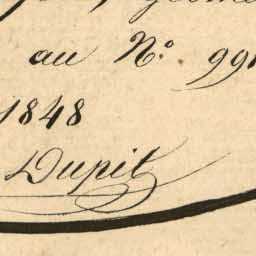 au N.º 991
1848
Dupit